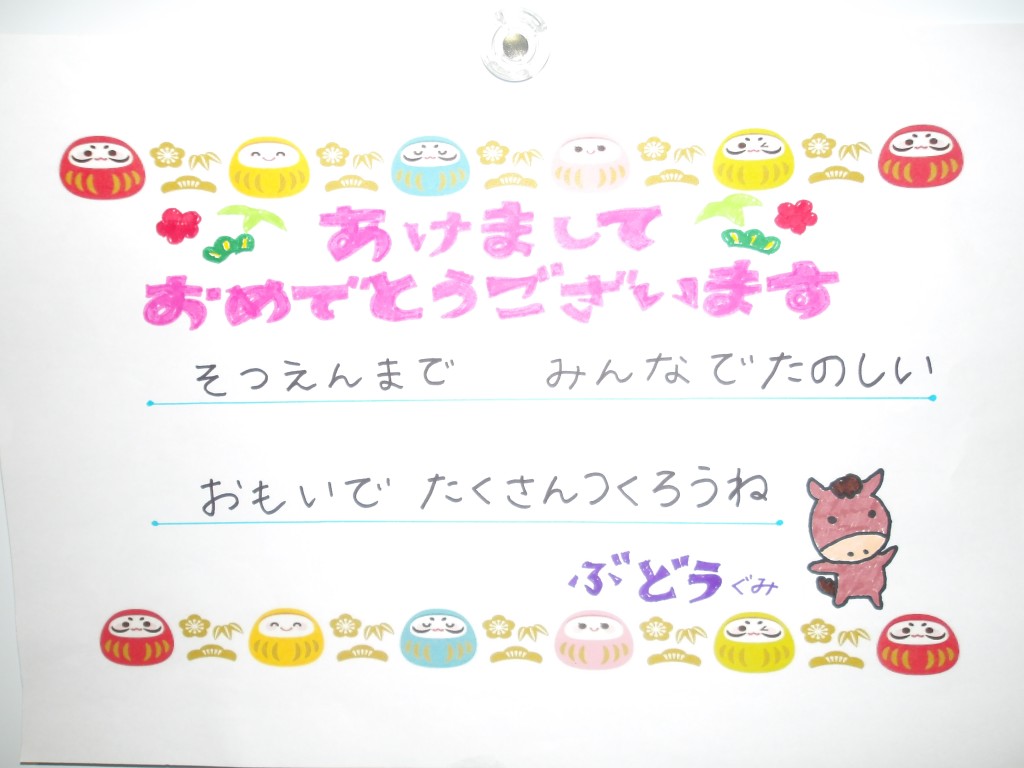 あけまして
おめでとうございます
そつえんまで　みんなでたのしい
おもいで たくさんつくろうね
ぶどうぐみ